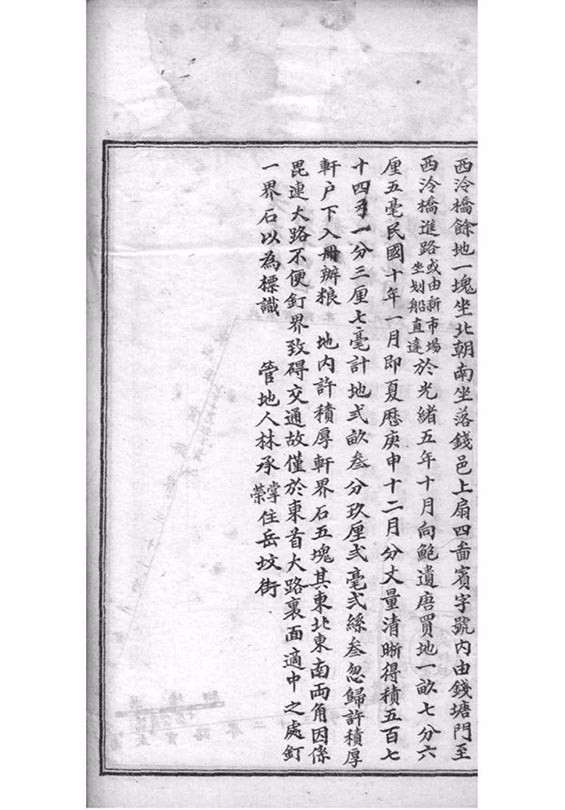 西泠橋餘地一塊坐北朝南坐落錢邑上扇四啚賓字號内由錢塘門至
西泠橋進路或由新市場坐划船直達於光緒五年十月向鲍遺唐買地一畝七分六
厘五毫民國十年一月即夏厯庚申十二月分丈量清晰得積五百七
十四弓一分三厘七毫計地弍畝叁分玖厘弍毫弍絲叁忽歸許積厚
軒户下入冊辦粮 地内許積厚軒界石五塊其東北東南両角因係
毘連大路不便釘界致碍交通故僅於東首大路裏面適中之處釘
一界石以為標識 管地人林承掌榮住岳坟街